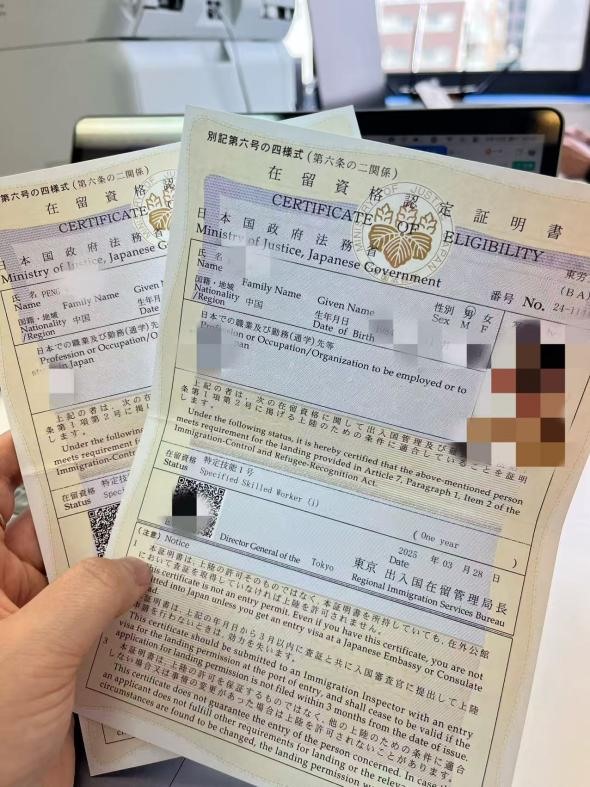 第六号の四様式 (第六条の二関係)
在留資格認
CERTIFICATE
日本国政府法務省
Ministry of Justice, Japanese Go
氏名 PENG
Name Family Name Given
国籍・地域 中国 生年月
Nationality Date o
/Region
日本での職業及び勤務(通学)先等
Profession or Occupation/O
in Japan
上記の者は、次の在
条第1項第2号に掲げ
します。
Under the following
meets requirement fo
Immigration-Control
在留資格 特定技
Status Spec
別記第六号の四様式 (第六条の二関係)
在留資格認定証明書
CERTIFICATE OF ELIGIBILITY
日本国政府法務省
Ministry of Justice, Japanese Government
東労
(BA)
番号 No. 24-111
氏名
Name Family Name Given Name
性別 男 女
Sex M F
国籍・地域 中国 生年月日
Nationality Date of Birth 198
/Region
日本での職業及び勤務(通学)先等
Profession or Occupation/Organization to be employed or to
上記の者は、次の在留資格に関して出入国管理及び
条第1項第2号に掲げる上陸のための条件に適合していることを証明
します。
Under the following status, it is hereby certified that the above-mentioned person
meets requirement for the landing provided in Article 7, Paragraph 1, Item 2 of the
Immigration-Control and Refugee-Recognition Act.
在留資格 特定技能1号
Status Specified Skilled Worker (i)
( One year )
2025 年 03 月 28 日
Director General of the Tokyo
東京 出入国在留管理局長
Regional Immigration Services Bureau
(注意) Notice
1 本証明書は、上陸の許可そのものではなく、本証明書を所持していても、在外公館
において査証を取得していなければ上陸を許可されません。
This certificate is not an entry permit. Even if you have this certificate, you are not
mitted into Japan unless you get an entry visa at a Japanese Embassy or Consulate
ad.
証明書は、上記の年月日から3月以内に査証と共に入国審査官に提出して上陸
申請を行わないときは、効力を失います。
This certificate should be submitted to an Immigration Inspector with an entry
visa for the landing permission at the port of entry, and shall cease to be valid if the
application for landing permission is not filed within 3 months from the date of issue.
3 本証明書は、上陸の許可を保証するものではなく、他の上陸のための条件に適合
しない場合又は事情の変更があった場合は上陸を許可されないことがあります。
This certificate does not guarantee the entry of the person concerned. In case
an applicant does not fulfill other requirements for landing or the releva
circumstances are found to be changed, the landing permission w